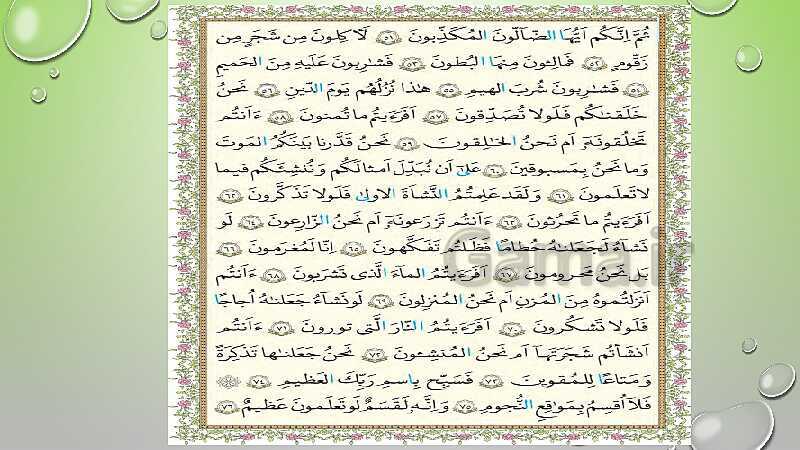 ثُمَّ اِنَّكُم اَيُّهَا الضّالّونَ المُكَذِّبونَ ﴿٥١﴾ لَآكِلونَ مِن شَجَرٍ مِن
زَقّومٍ ﴿٥٢﴾ فَمالِئونَ مِنهَا البُطونَ ﴿٥٣﴾ فَشارِبونَ عَلَيهِ مِنَ الحَميمِ
﴿٥٤﴾ فَشارِبونَ شُربَ الهيمِ ﴿٥٥﴾ هٰذا نُزُلُهُم يَومَ الدّينِ ﴿٥٦﴾ نَحنُ
خَلَقناكُم فَلَولا تُصَدِّقونَ ﴿٥٧﴾ اَفَرَءَيتُم ما تُمنونَ ﴿٥٨﴾ ءَاَنتُم
تَخلُقونَهٗ اَم نَحنُ الخالِقونَ ﴿٥٩﴾ نَحنُ قَدَّرنا بَينَكُمُ المَوتَ
وَما نَحنُ بِمَسبوقينَ ﴿٦٠﴾ عَلىٰ اَن نُبَدِّلَ اَمثالَكُم وَنُنشِئَكُم فيما
لا تَعلَمونَ ﴿٦١﴾ وَلَقَد عَلِمتُمُ النَّشاَةَ الاولىٰ فَلَولا تَذَكَّرونَ ﴿٦٢﴾
اَفَرَءَيتُم ما تَحرُثونَ ﴿٦٣﴾ ءَاَنتُم تَزرَعونَهٗ اَم نَحنُ الزّارِعونَ ﴿٦٤﴾ لَو
نَشآءُ لَجَعَلناهُ حُطامًا فَظَلتُم تَفَكَّهونَ ﴿٦٥﴾ اِنّا لَمُغرَمونَ ﴿٦٦﴾
بَل نَحنُ مَحرومونَ ﴿٦٧﴾ اَفَرَءَيتُمُ المآءَ الَّذى تَشرَبونَ ﴿٦٨﴾ ءَاَنتُم
اَنزَلتُموهُ مِنَ المُزنِ اَم نَحنُ المُنزِلونَ ﴿٦٩﴾ لَو نَشآءُ جَعَلناهُ اُجاجًا
فَلَولا تَشكُرونَ ﴿٧٠﴾ اَفَرَءَيتُمُ النّارَ الَّتى تورونَ ﴿٧١﴾ ءَاَنتُم
اَنشَأتُم شَجَرَتَهآ اَم نَحنُ المُنشِئونَ ﴿٧٢﴾ نَحنُ جَعَلناها تَذكِرَةً
وَمَتاعًا لِلمُقوينَ ﴿٧٣﴾ فَسَبِّح بِاسمِ رَبِّكَ العَظيمِ ﴿٧٤﴾
فَلآ اُقسِمُ بِمَواقِعِ النُّجومِ ﴿٧٥﴾ وَاِنَّهٗ لَقَسَمٌ لَو تَعلَمونَ عَظيمٌ ﴿٧٦﴾
Gama.ir